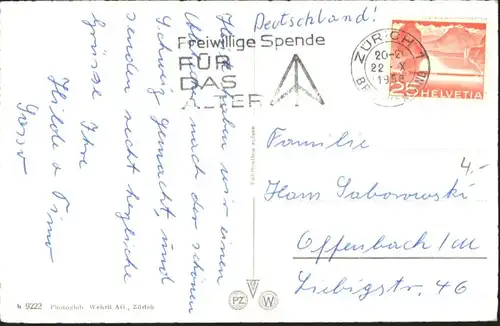 Deutschland!
Freiwillige Spende
FÜR
DAS
ALTER
ZÜRICH 1
20-21
22 X
HELVETIA
25
Heute haben wir einen
nach der schönen
Schweiz gemacht, und
senden recht herzliche
Grüsse Ihre
Hilde &
Familie
Hans Saborowski
Offenbach/M
Liebigstr. 46
4,-
N 9222 Photoglob Wehrli AG., Zürich
PZ
W